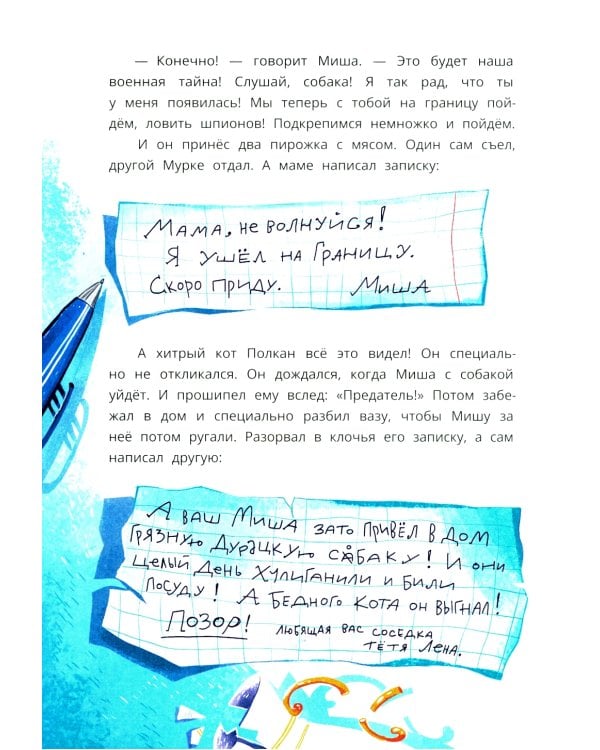 — Конечно! — говорит Миша. — Это будет наша
военная тайна! Слушай, собака! Я так рад, что ты
у меня появилась! Мы теперь с тобой на границу пой-
дём, ловить шпионов! Подкрепимся немножко и пойдём.
И он принёс два пирожка с мясом. Один сам съел,
другой Мурке отдал. А маме написал записку:
Мама, не волнуйся!
Я ушёл на Границу.
Скоро приду. Миша
А хитрый кот Полкан всё это видел! Он специаль-
но не откликался. Он дождался, когда Миша с собакой
уйдёт. И прошипел ему вслед: «Предатель!» Потом забе-
жал в дом и специально разбил вазу, чтобы Мишу за
неё потом ругали. Разорвал в клочья его записку, а сам
написал другую:
А ваш Миша зато привёл в дом
грязную дурацкую сабаку! И они
целый день хулиганили и били
посуду! А бедного кота он выгнал!
Позор! любящая вас соседка
тётя Лена.